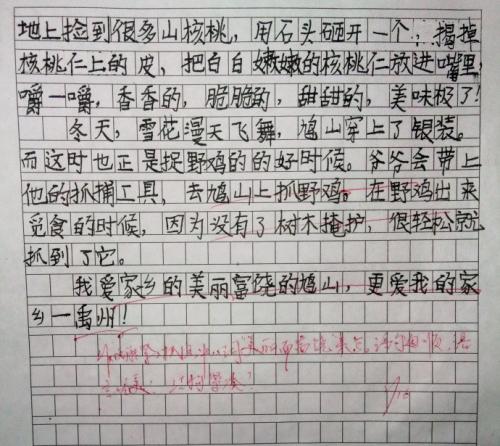 地上捡到很多山核桃，用石头砸开一个，揭掉
核桃仁上的皮，把白白嫩嫩的核桃仁放进嘴里，
嚼一嚼，香香的，脆脆的，甜甜的，美味极了！
冬天，雪花漫天飞舞，鸠山穿上了银装。
而这时也正是捉野鸡的的好时候。爷爷会带上
他的抓捕工具，去鸠山上抓野鸡。在野鸡出来
觅食的时候，因为没有了树木掩护，很轻松就
抓到了它。
我爱家乡的美丽富饶的鸠山，更爱我的家
乡一禹州！